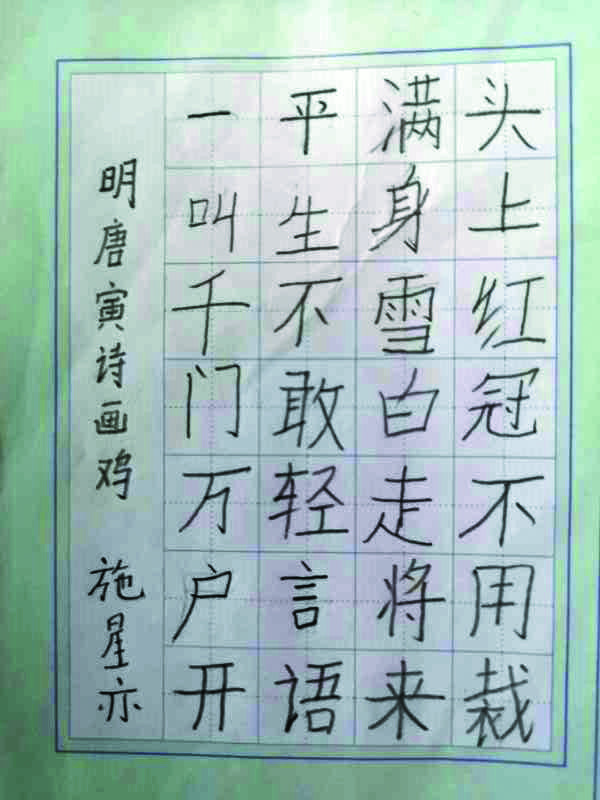 头上红冠不用裁
满身雪白走将来
平生不敢轻言语
一叫千门万户开
明唐寅诗画鸡 施星亦